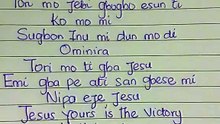 Tori mo Jebi gbogbo esun ti
Ko mo mi
Sugbon Inu mi dun mo di
Ominira
Tori mo ti gba Jesu
Emi gba pe ati san gbese mi
Nipa eje Jesu
Jesus Yours is the Victory